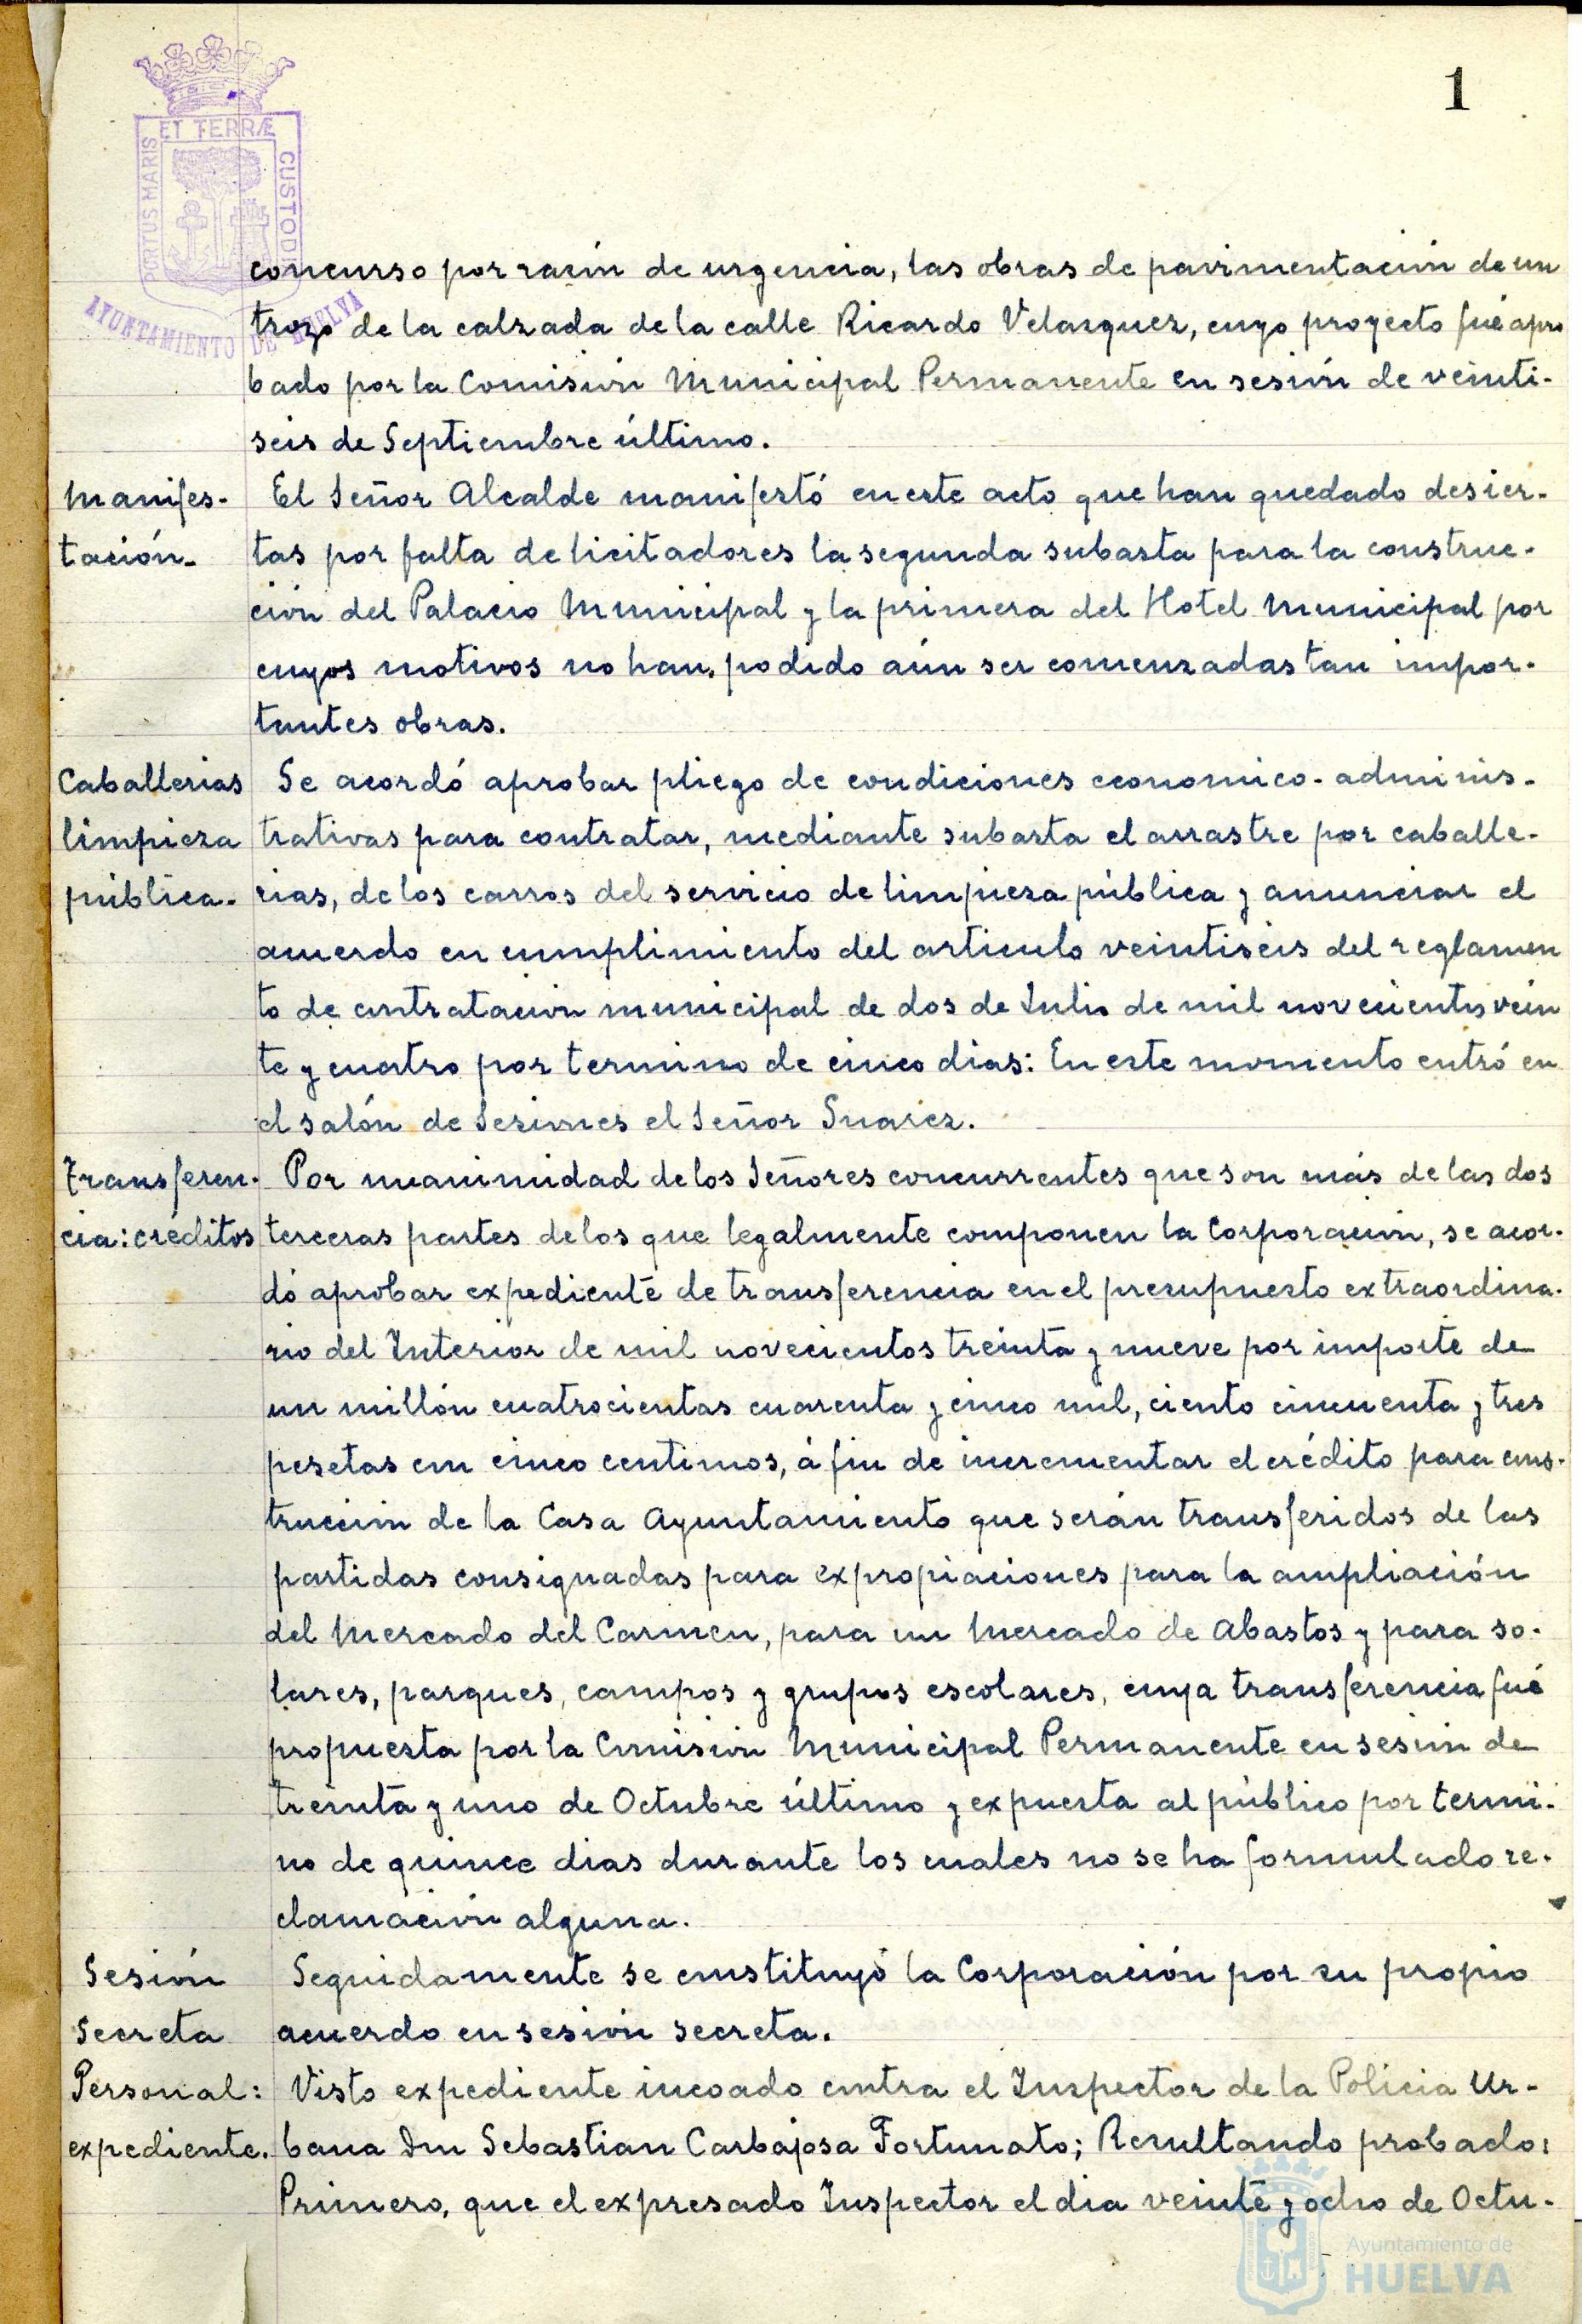 1
ET TERRÆ
PORTUS MARIS
CUSTOD
AYUNTAMIENTO DE HUELVA
concurso por razón de urgencia, las obras de pavimentación de un
trozo de la calzada de la calle Ricardo Velazquez, cuyo proyecto fué apro
bado por la Comisión Municipal Permanente en sesión de veinti-
seis de Septiembre último.
Manifes-
tación-
El Señor Alcalde manifestó en este acto que han quedado desier-
tas por falta de licitadores la segunda subasta para la construc-
ción del Palacio Municipal y la primera del Hotel Municipal por
cuyos motivos no han podido aún ser comenzadas tan impor-
tantes obras.
Caballerias
limpieza
pública-
Se acordó aprobar pliego de condiciones economico-adminis-
trativas para contratar, mediante subasta el arrastre por caballe-
rias, de los carros del servicio de limpieza pública y anunciar el
acuerdo en cumplimiento del articulo veintiseis del reglamen
to de contratación municipal de dos de Julio de mil novecientos vein
te y cuatro por termino de cinco dias: En este momento entró en
el salón de Sesiones el Señor Suarez.
Transferen-
cia: créditos
Por unanimidad de los Señores concurrentes que son más de las dos
terceras partes de los que legalmente componen la Corporación, se acor-
dó aprobar expediente de transferencia en el presupuesto extraordina-
rio del Interior de mil novecientos treinta y nueve por importe de
un millón cuatrocientas cuarenta y cinco mil, ciento cincuenta y tres
pesetas con cinco centimos, á fin de incrementar el crédito para cons-
trucción de la Casa Ayuntamiento que serán transferidos de las
partidas consignadas para expropiaciones para la ampliación
del Mercado del Carmen, para un Mercado de Abastos y para so-
lares, parques, campos y grupos escolares, cuya transferencia fué
propuesta por la Comisión Municipal Permanente en sesión de
treinta y uno de Octubre último y expuesta al público por termi-
no de quince dias durante los cuales no se ha formulado re-
clamación alguna.
Sesión
Secreta
Seguidamente se constituyó la Corporación por su propio
acuerdo en sesión secreta.
Personal:
expediente.
Visto expediente incoado contra el Inspector de la Policia Ur-
bana Don Sebastian Carbajosa Fortunato; Resultando probado:
Primero, que el expresado Inspector el dia veinte y ocho de Octu-
Ayuntamiento de
HUELVA